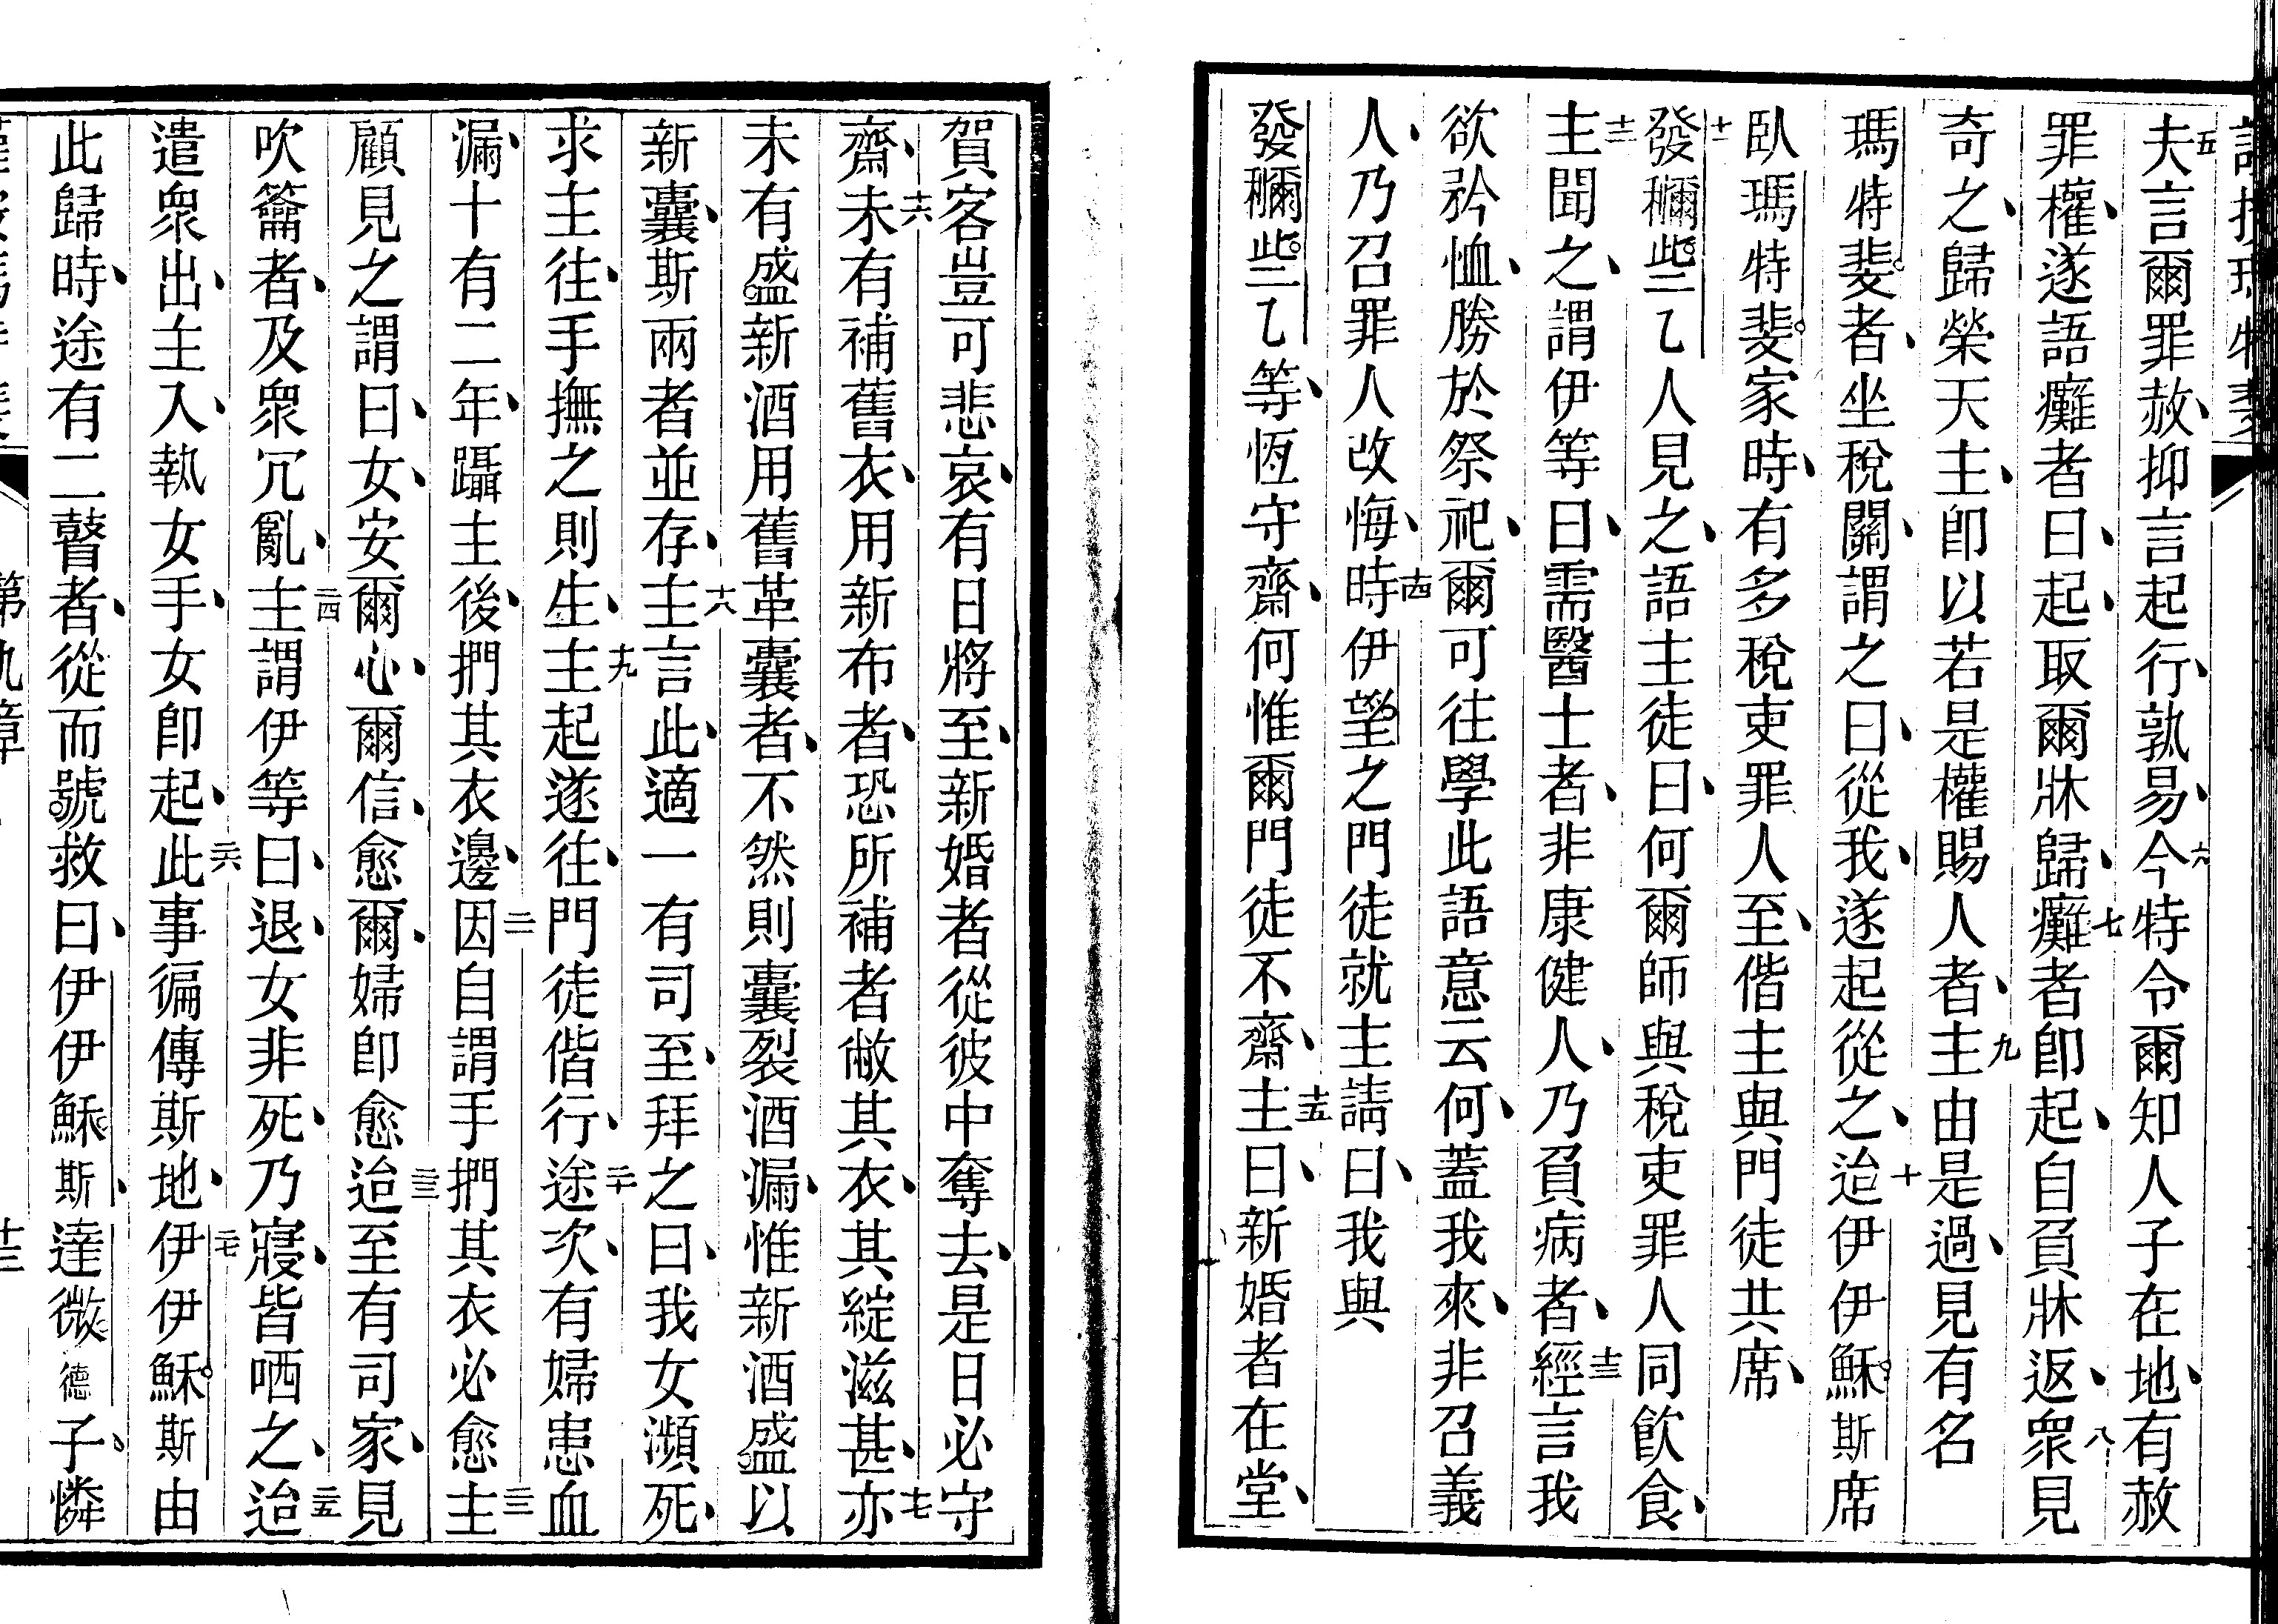 五夫言爾罪赦、抑言起行、孰易、六今特令爾知人子在地、有赦
罪權、遂語癱者曰、起、取爾牀歸、七癱者卽起、自負牀返、八衆見
奇之、歸榮天主、卽以若是權賜人者、九主由是過、見有名
瑪特斐者、坐稅關、謂之曰、從我、遂起從之、十迨伊伊穌斯席
臥瑪特斐家時、有多稅吏罪人至、偕主與門徒共席、
十一發穪些乙人見之、語主徒曰、何爾師與稅吏罪人同飮食、
十二主聞之、謂伊等曰、需醫士者、非康健人、乃負病者、十三經言我
欲矜恤、勝於祭祀、爾可往學此語意云何、蓋我來、非召義
人、乃召罪人改悔、十四時伊望之門徒就主請曰、我與
發穪些乙等、恆守齋、何惟爾門徒不齋、十五主曰、新婚者在堂、
賀客豈可悲哀、有日將至、新婚者從彼中奪去、是日必守
齋、十六未有補舊衣、用新布者、恐所補者敝其衣、其綻滋甚、十七亦
未有盛新酒用舊革囊者、不然則囊裂酒漏、惟新酒盛以
新囊、斯兩者並存、十八主言此、適一有司至、拜之曰、我女瀕死、
求主往、手撫之則生、十九主起遂往、門徒偕行、二十途次、有婦患血
漏、十有二年、躡主後、捫其衣邊、二一因自謂手捫其衣必愈、二二主
顧見之、謂曰、女、安爾心、爾信、愈爾、婦卽愈、二三迨至有司家、見
吹籥者、及衆冗亂、二四主謂伊等曰、退、女非死、乃寢、皆哂之、二五迨
遣衆出、主入、執女手、女卽起、二六此事徧傳斯地、二七伊伊穌斯由
此歸時、途有二瞽者、從而號救曰、伊伊穌斯、達微德子、憐
第九章
十三